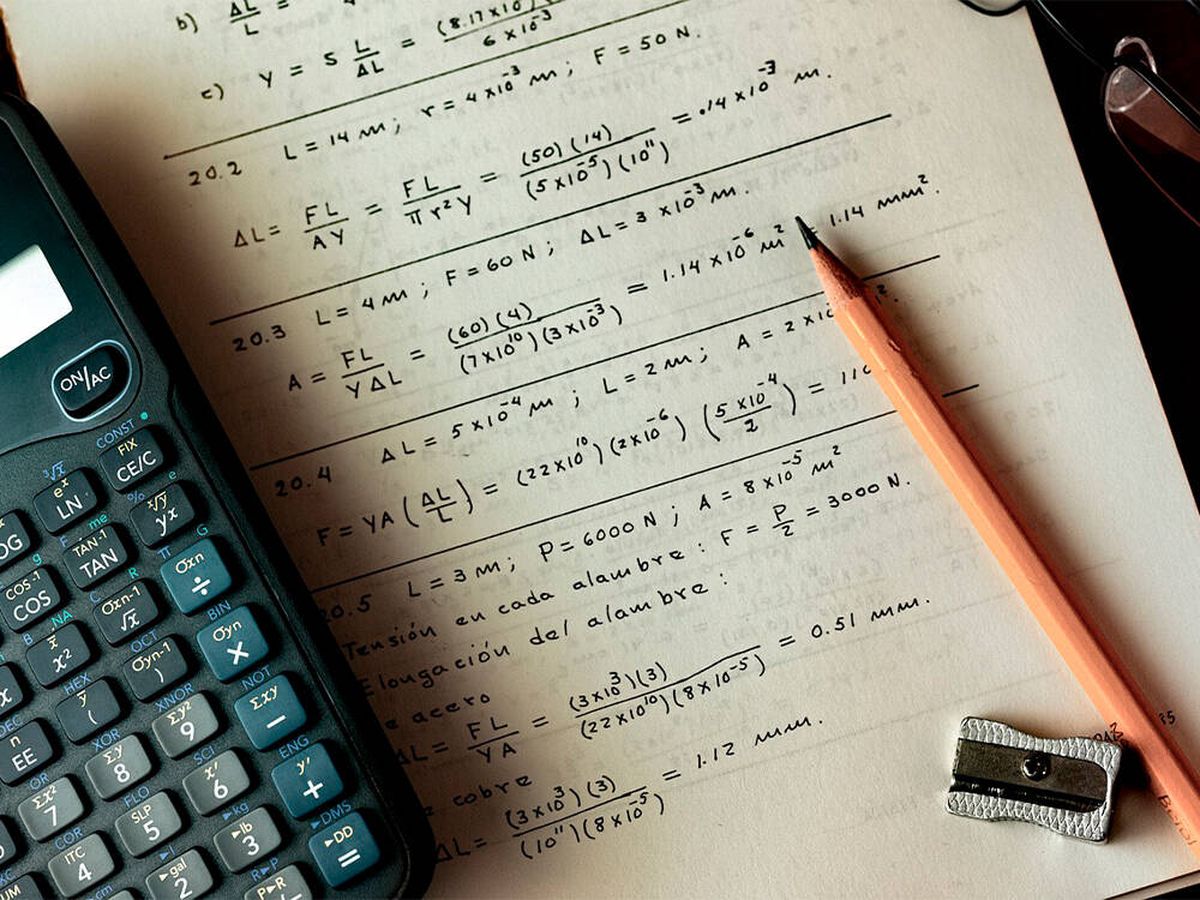 b) ΔL/L =
c) Y = S L/ΔL = (8.17x10 / 6x10⁻³
20.2 L = 14 m; r = 4x10⁻³ m; F = 50 N.
ΔL = FL/AY = FL/πr²Y = (50)(14)/(5x10⁻⁵)(10¹¹) = .14x10⁻³ m.
20.3 L = 4 m; F = 60 N; ΔL = 3x10⁻³ m.
A = FL/YΔL = (60)(4)/(7x10¹⁰)(3x10⁻³) = 1.14x10⁻⁶ m² = 1.14 mm².
20.4 ΔL = 5x10⁻⁴ m; L = 2 m; A = 2x10 ².
F = YA(ΔL/L) = (22x10¹⁰)(2x10⁻⁶)(5x10⁻⁴/2) = 110
20.5 L = 3 m; P = 6000 N; A = 8x10⁻⁵ m²
Tensión en cada alambre: F = P/2 = 3000 N.
Elongación del alambre:
e acero
ΔL = FL/YA = (3x10³)(3)/(22x10¹⁰)(8x10⁻⁵) = 0.51 mm.
cobre
ΔL = (3x10³)(3)/(10¹¹)(8x10⁻⁵) = 1.12 mm.
ON/AC
CONST
FIX
CE/C
³√x eˣ LN
% ˣ√y yˣ e
me TAN⁻¹ TAN
π σxn ÷ G
g COS⁻¹ COS
C σxn-1 √x R
BIN σyn ×
B x̄ x² NA
OCT σyn-1 )
NOT Σxy −
HEX ȳ (
XNOR Σy² 9
ENG y′ +
DEC n EE
XOR Σy 8
SCI x′ 6
▸DMS ▸DD =
OR Σx² 7
FLO SLP 5
▸kg ▸lb 3
COR ITC 4
▸l ▸gal 2
R▸P P▸R
cm